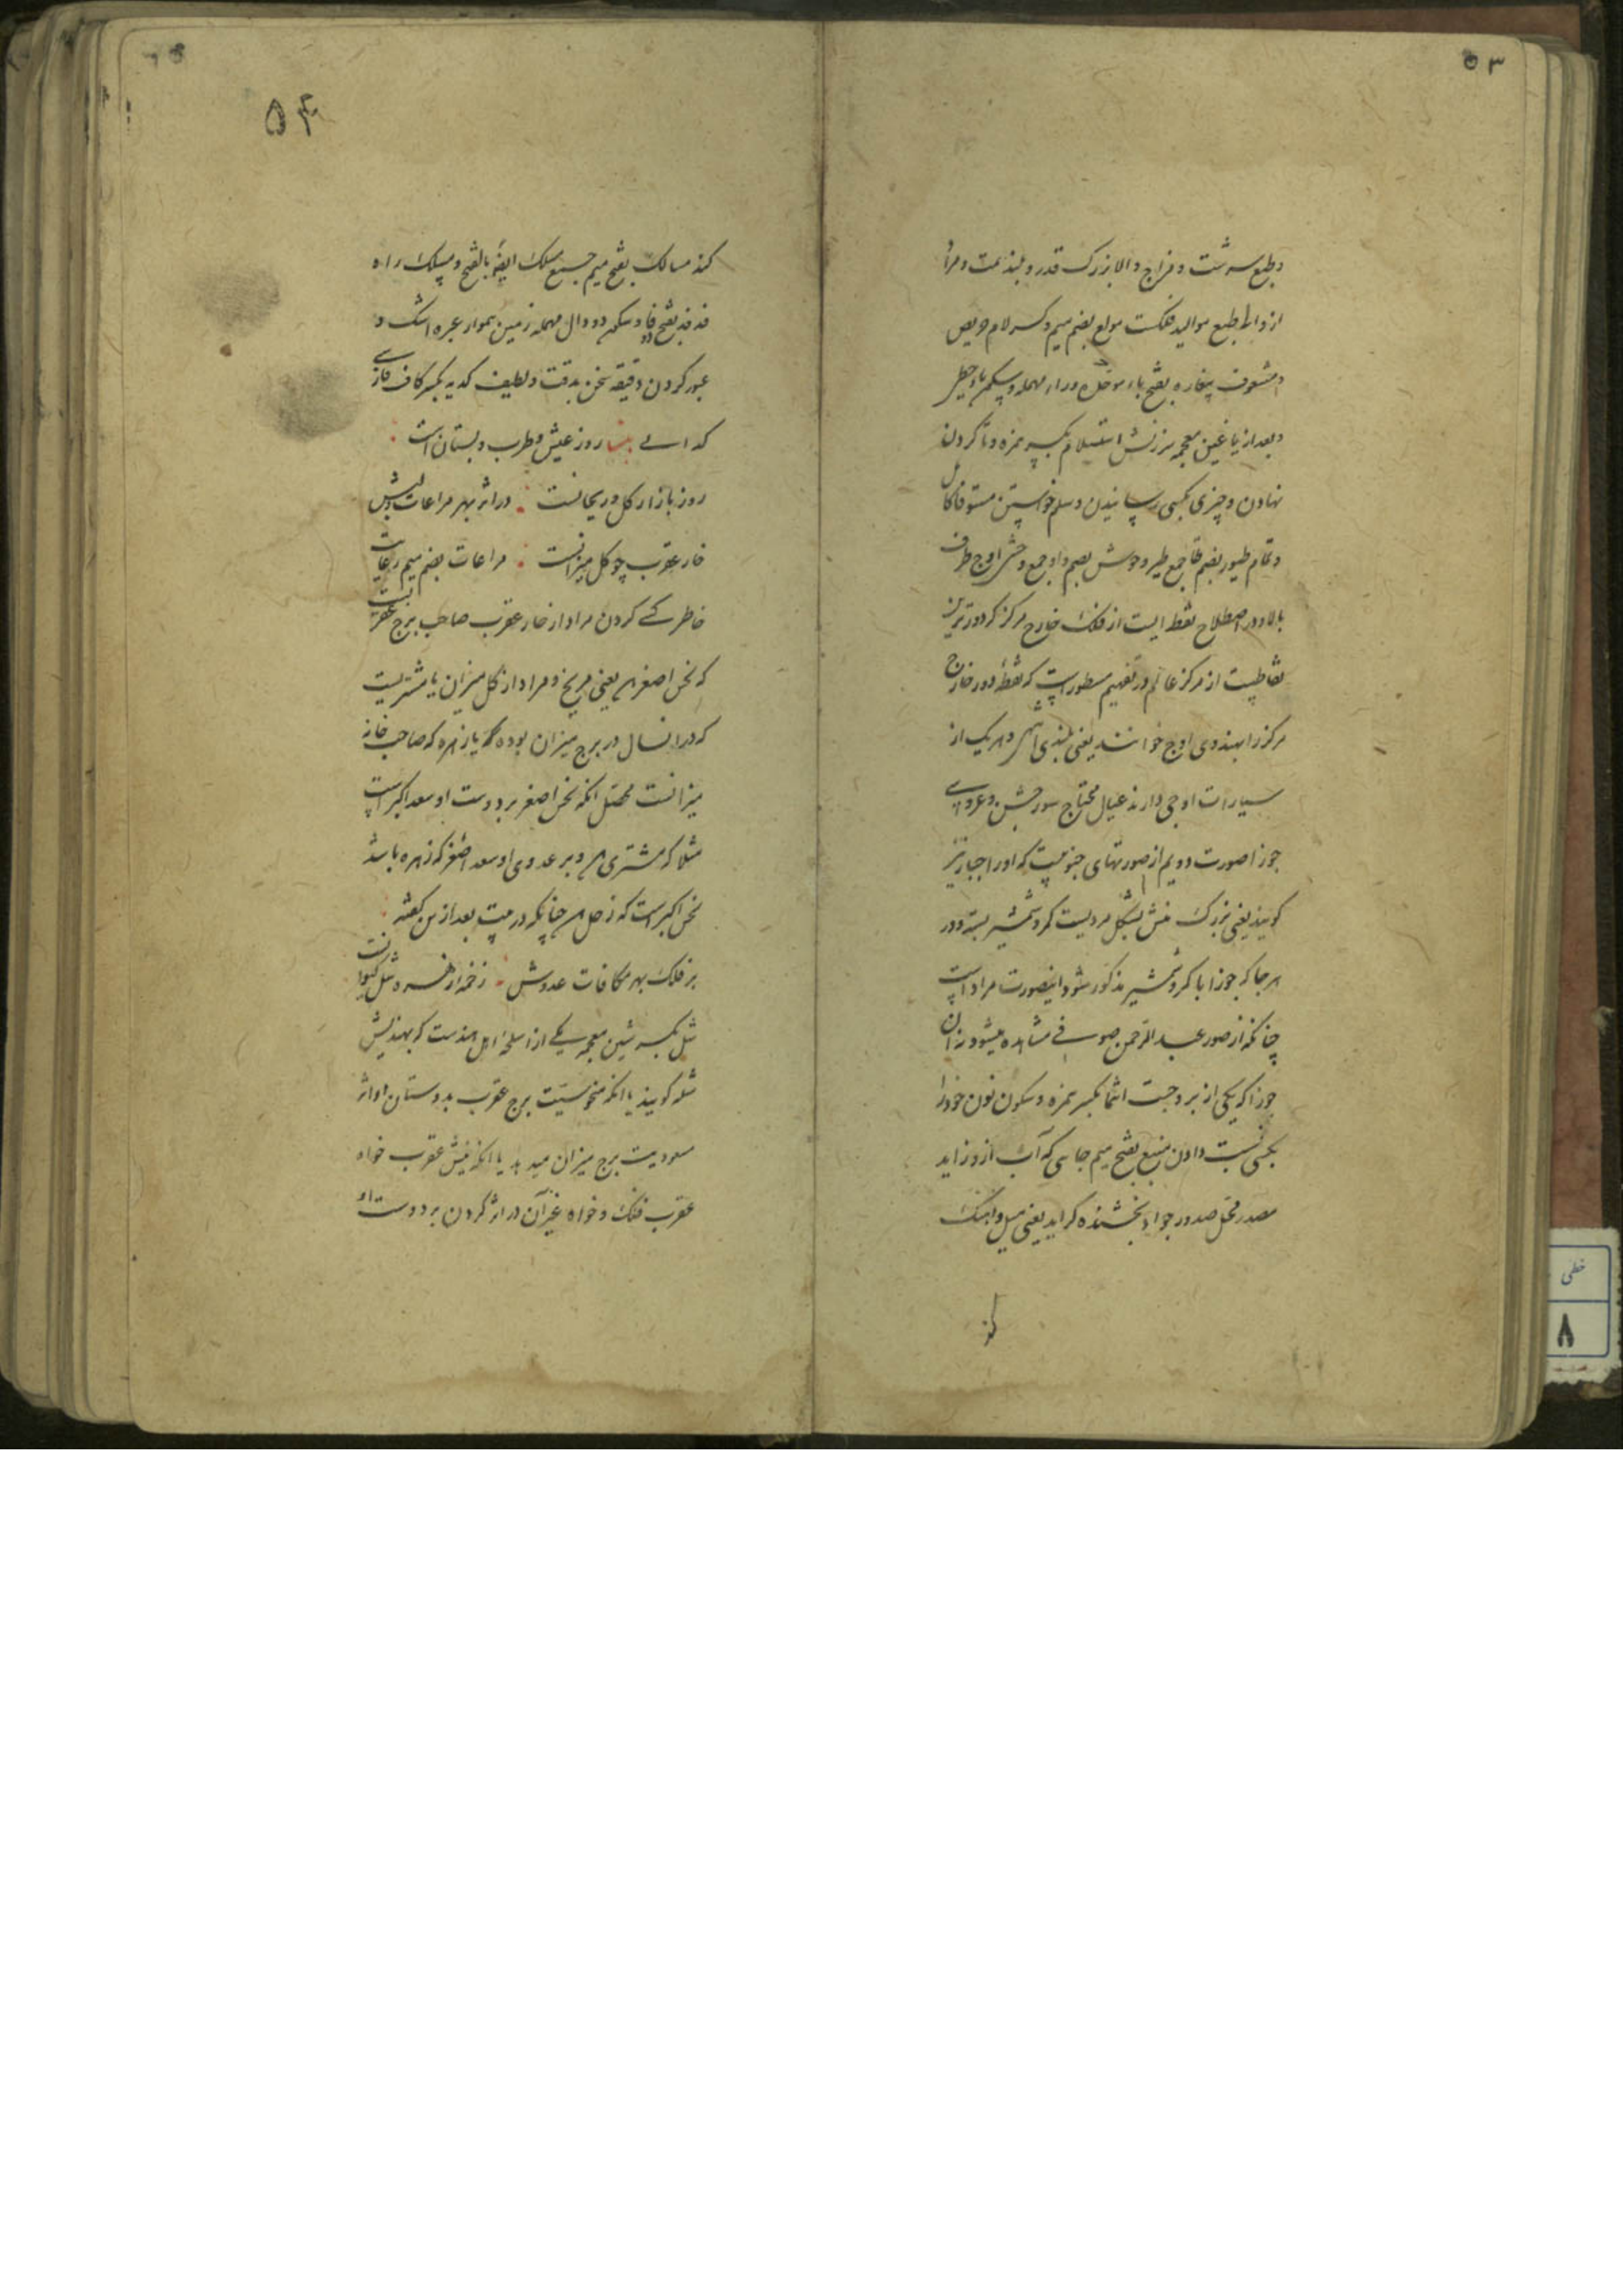 ۵۳
و طبع سرشت و مزاج والا بزرک قدر و بلند همت و مراد
از والا طبع موالید فلکست مولع بضم میم و کسر لام حریص
و مشعوف پیغاره بفتح باء موحده وراء مهمله و سکون یاء حطی
و بعد از یا غین معجمه سرزنش استسلام بکسر همزه و تا کردن
نهادن و چیزی بکسی رسانیدن و سلم خواستن مستوفا کامل
و تمام طیور بضم طا جمع طیر و حوش بضم واو جمع وحش اوج طرف
بالا و در اصطلاح نقطه ایست از فلک خارج مرکز که دورترین
نقاطست از مرکز عالم و در تفهیم مسطور است که نقطه دور خارج
مرکز را بهندوی اوج خوانند یعنی بلندی و هر یک از
سیارات اوجی دارند عیال محتاج سور جشن و عروسی
جوزا صورت دویم از صورتهای جنوبیست که او را جبار نیز
کویند یعنی بزرک منش بشکل مردیست کمر و شمشیر بسته و در
هر جا که جوزا با کمر و شمشیر مذکور شود اینصورت مراد است
چنانکه از صور عبد الرحمن صوفی مشاهده میشود نه آن
جوزا که یکی از بروجست انتما بکسر همزه و سکون نون خود را
بکسی نسبت دادن منبع بفتح میم جایی که آب از و زاید
مصدر محل صدور جواد بخشنده کراید یعنی میل و آهنک
کند
۵۴
کند مسالک بفتح میم جمع مسلک ایضا بالفتح و مسلک راه
فدفد بفتح فا و سکون دو دال مهمله زمین هموار عبره اشک و
عبور کردن دقیقه سخن بدقت و لطیف کدیه بکسر کاف فارسی
کدایی بیت روز عیش و طرب و بستان است
روز بازار کل و ریحانست در اثر بهر مراعات ولیش
خار عقرب چو کل میزانست مراعات بضم میم رعایت
خاطر کسی کردن مراد از خار عقرب صاحب برج عقربست
که نحس اصغر یعنی مریخ و مراد از کل میزان یا مشتریست
که در انسال در برج میزان بوده یا زهره که صاحب خانه
میزانست محصل انکه نحس اصغر بر دوست او سعد اکبر است
مثلا که مشتری و بر عدوی او سعد اصغر که زهره باشد
نحس اکبر است که زحل چنانکه در بیت بعد از من کفته
بر فلک بهر مکافات عدوش زخمه از زهره شل کیوانست
شل بکسر شین معجمه یکی از اسلحه اهل هندست که بهندیش
شله کویند یا انکه منحوسیت برج عقرب بدوستان او اثر
مسعودیت برج میزان میدهد یا انکه نیش عقرب خواه
عقرب فلک و خواه غیر آن در اثر کردن بر دوست او
خطی
۸